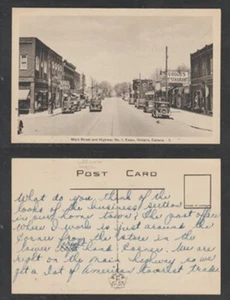 Main Street and Highway No. 3, Essex, Ontario, Canada
POST CARD
What do you think of the
looks of the business section
in our home town? The post office
where I work is just around the
corner from the store in the
lower left hand corner. We are
right on the main highway so we
get a lot of American tourist trade